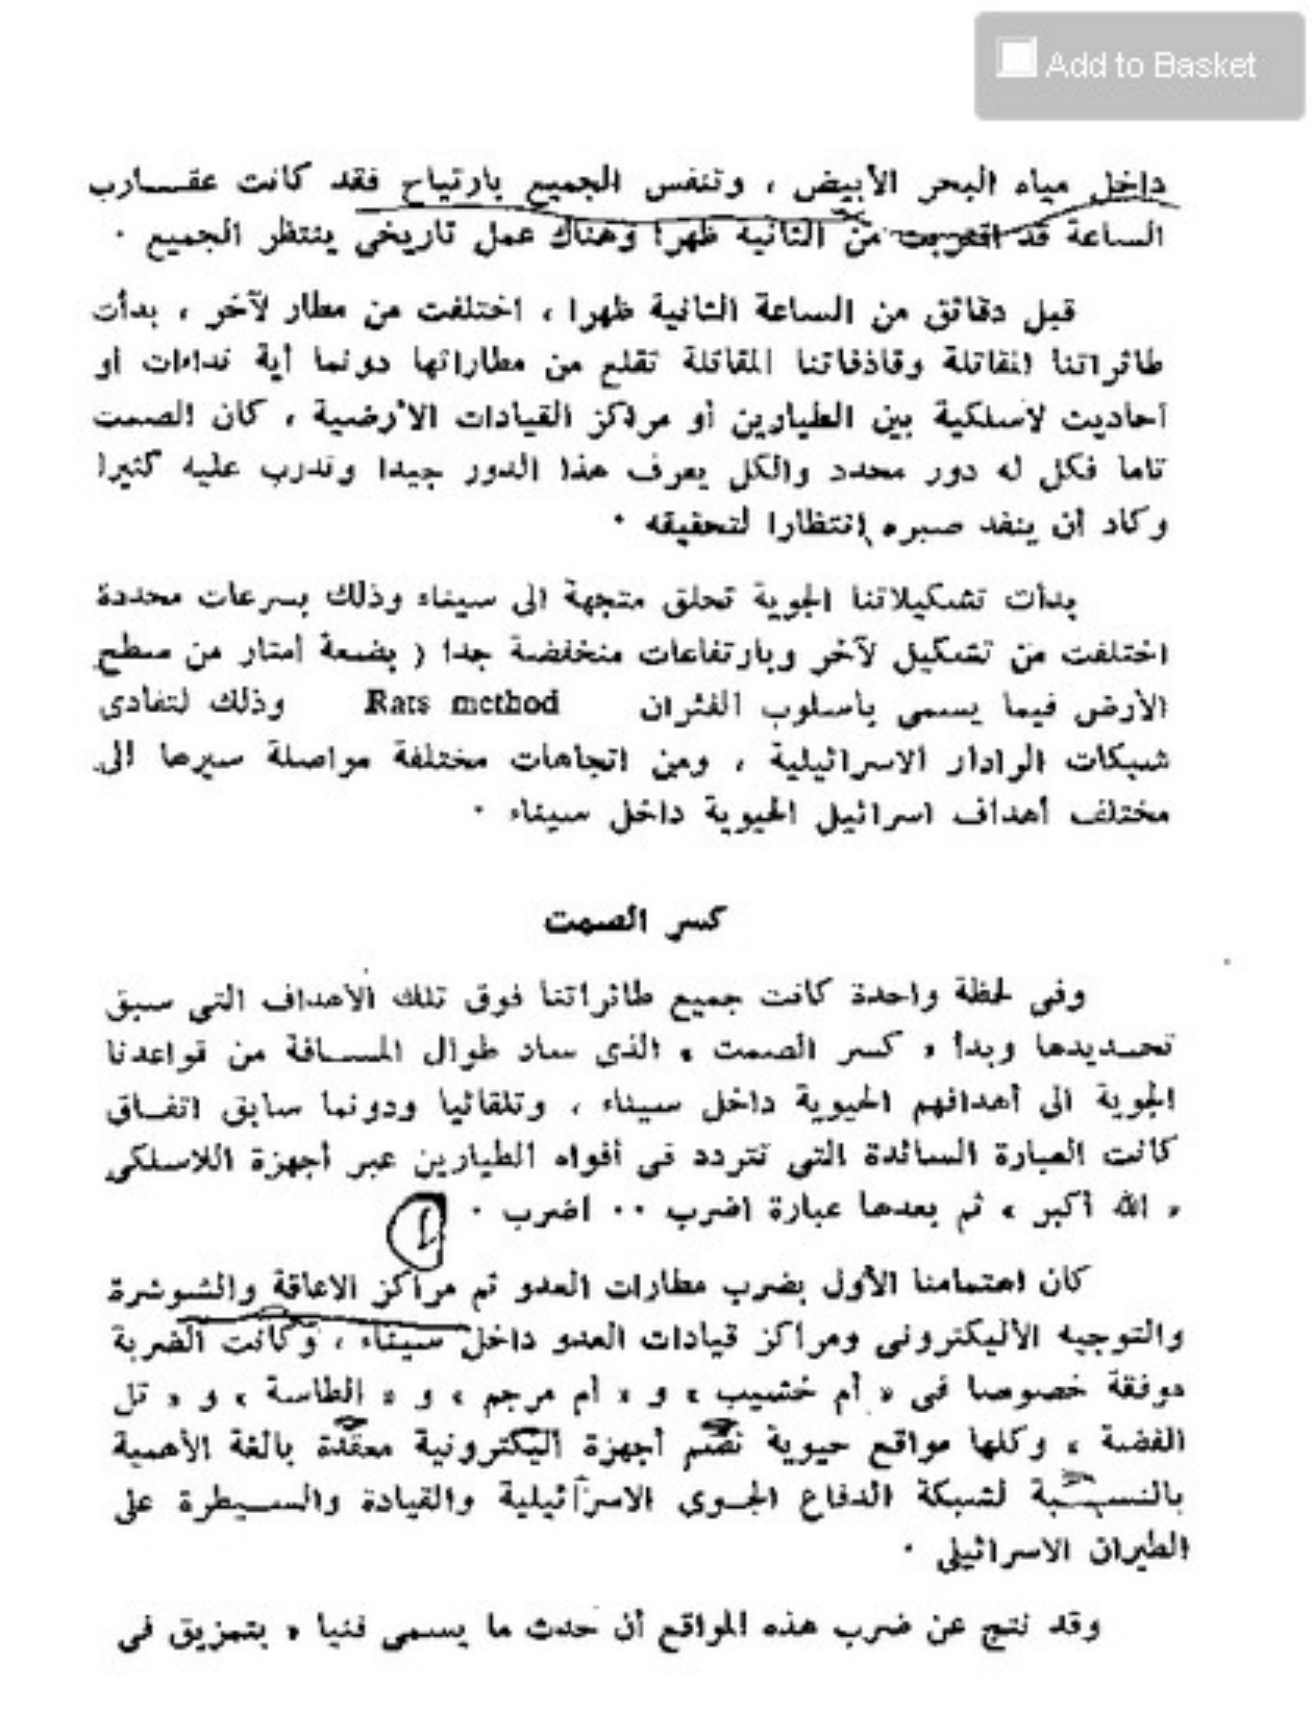 Add to Basket
داخل مياه البحر الأبيض ، وتنفس الجميع بارتياح فقد كانت عقـــارب
الساعة قد اقتربت من الثانية ظهرا وهناك عمل تاريخى ينتظر الجميع ٠
قبل دقائق من الساعة الثانية ظهرا ، اختلفت من مطار لآخر ، بدأت
طائراتنا المقاتلة وقاذفاتنا المقاتلة تقلع من مطاراتها دونما أية نداءات أو
أحاديث لاسلكية بين الطيارين أو مراكز القيادات الأرضية ، كان الصمت
تاما فكل له دور محدد والكل يعرف هذا الدور جيدا وتدرب عليه كثيرا
وكاد أن ينفد صبره انتظارا لتحقيقه ٠
بدأت تشكيلاتنا الجوية تحلق متجهة الى سيناء وذلك بسرعات محددة
اختلفت من تشكيل لآخر وبارتفاعات منخفضة جدا ( بضعة أمتار من سطح
الأرض فيما يسمى بأسلوب الفئران Rats method وذلك لتفادى
شبكات الرادار الاسرائيلية ، ومن اتجاهات مختلفة مواصلة سيرها الى
مختلف أهداف اسرائيل الحيوية داخل سيناء ٠
كسر الصمت
وفى لحظة واحدة كانت جميع طائراتنا فوق تلك الأهداف التى سبق
تحـديدها وبدأ « كسر الصمت » الذى ساد طوال المســافة من قواعدنا
الجوية الى أهدافهم الحيوية داخل سيناء ، وتلقائيا ودونما سابق اتفـاق
كانت العبارة السائدة التى تتردد فى أفواه الطيارين عبر أجهزة اللاسلكى
« الله أكبر » ثم بعدها عبارة اضرب ٠٠ اضرب ٠
كان اهتمامنا الأول بضرب مطارات العدو ثم مراكز الاعاقة والشوشرة
والتوجيه الأليكترونى ومراكز قيادات العدو داخل سيناء ، وكانت الضربة
موفقة خصوصا فى « أم خشيب » و « أم مرجم » و « الطاسة » و « تل
الفضة » وكلها مواقع حيوية تضم أجهزة اليكترونية معقدة بالغة الأهمية
بالنســبة لشبكة الدفاع الجـوى الاسرائيلية والقيادة والســيطرة على
الطيران الاسرائيلى ٠
وقد نتج عن ضرب هذه المواقع أن حدث ما يسمى فنيا « بتمزيق فى